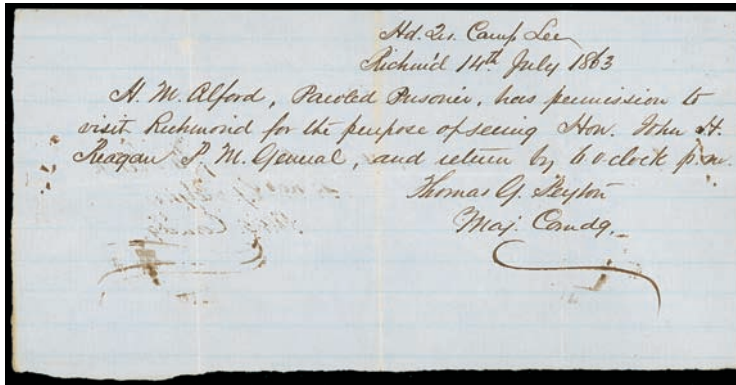 Hd. Qrs. Camp Lee
Richm'd 14th July 1863
H. M. Alford, Paroled Prisoner, has permission to
visit Richmond for the purpose of seeing Hon. John H.
Reagan P. M. General, and return by 6 o'clock p.m.
Thomas G. Peyton
Maj. Comdg.